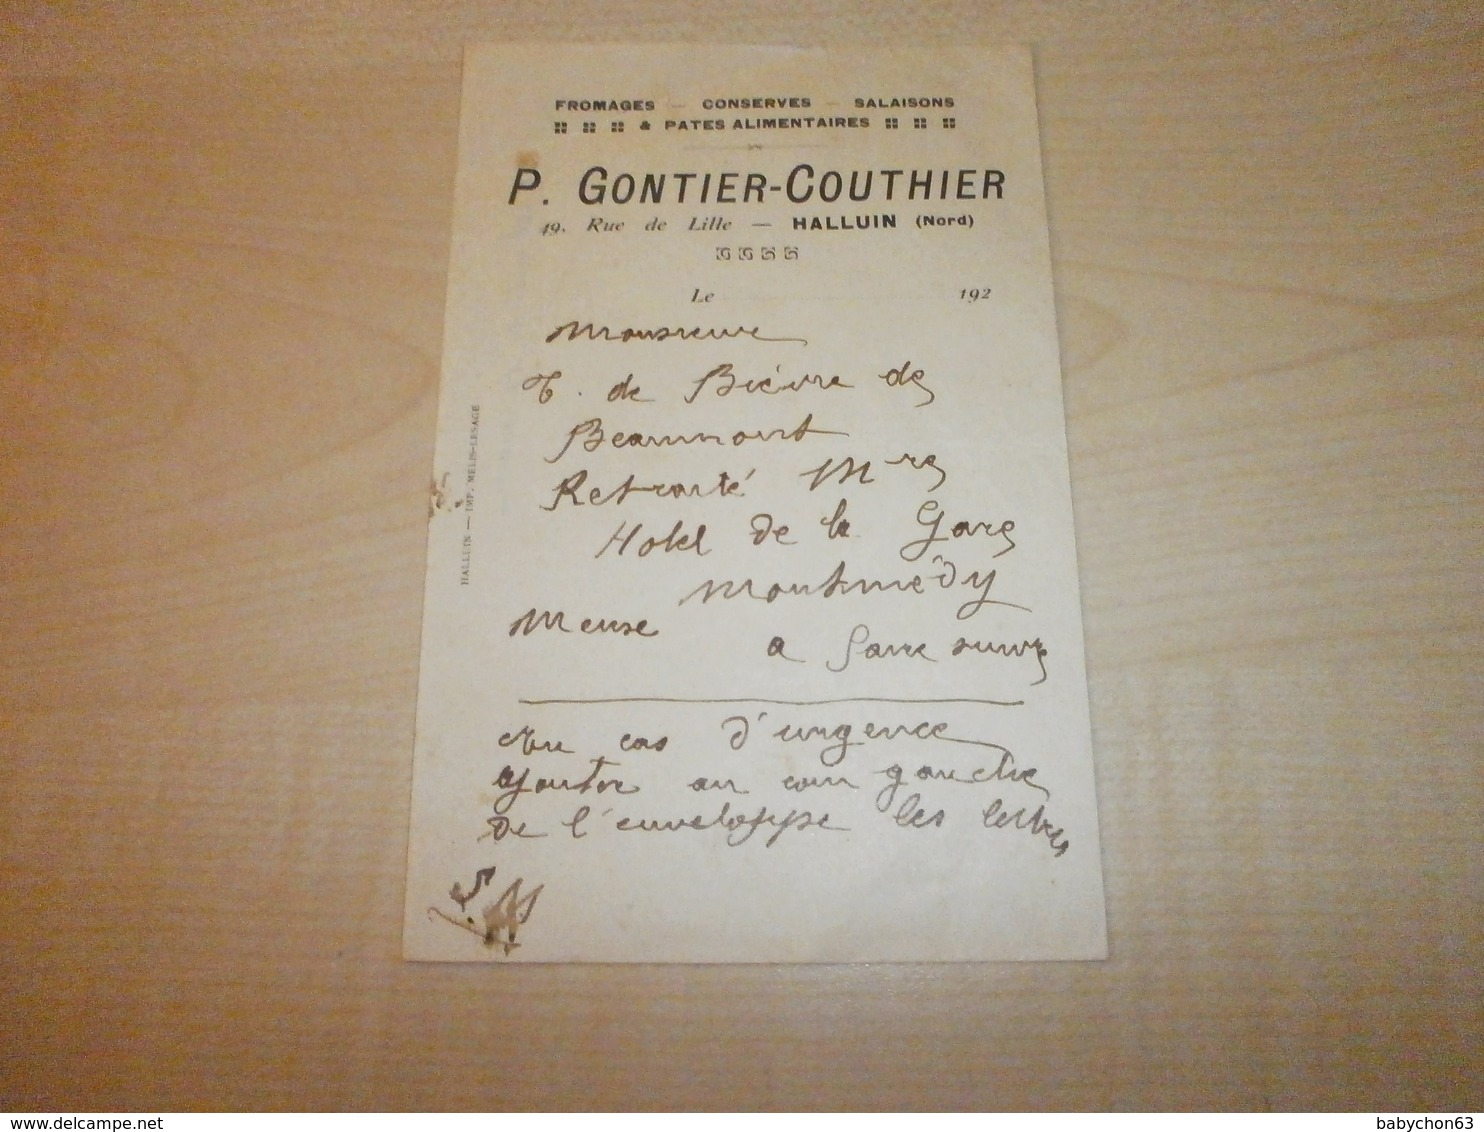 FROMAGES — CONSERVES — SALAISONS
& PATES ALIMENTAIRES
P. GONTIER-COUTHIER
49, Rue de Lille — HALLUIN (Nord)
Le 192
Monsieur
T. de Bièvre de
Beaumont
Retraité Mre
Hotel de la Gare
Montmédy
Meuse
a faire suivre
En cas d'urgence
ajouter au coin gauche
de l'enveloppe les lettres
HALLUIN — IMP. MELIS-LESAGE
babychon63